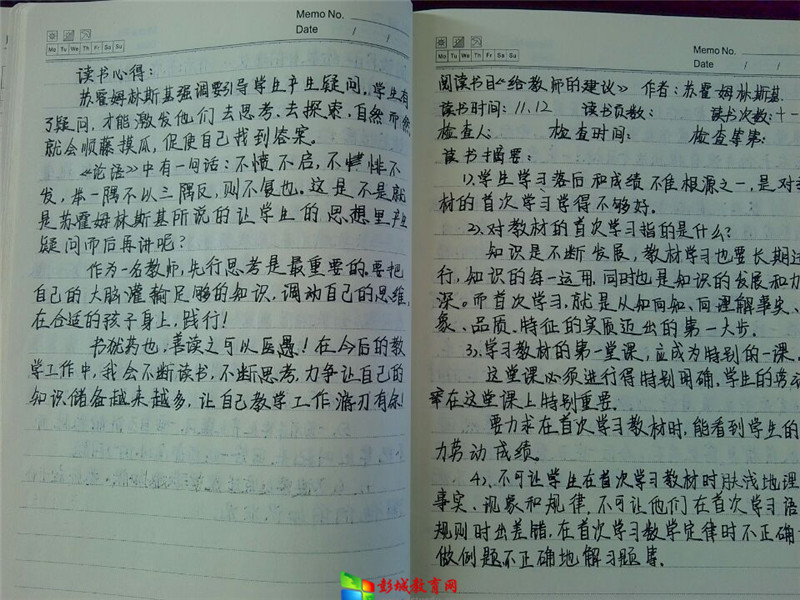 Memo No.
Date / /
Mo Tu We Th Fr Sa Su
读书心得：
苏霍姆林斯基强调要引导学生产生疑问。学生有
了疑问，才能激发他们去思考、去探索，自然而然
就会顺藤摸瓜，促使自己找到答案。
《论语》中有一句话：不愤不启，不悱不
发，举一隅不以三隅反，则不复也。这是不是就
是苏霍姆林斯基所说的让学生的思想里产生
疑问而后再讲呢？
作为一名教师，先行思考是最重要的。要把
自己的大脑灌输足够的知识，调动自己的思维，
在合适的孩子身上，践行！
书犹药也，善读之可以医愚！在今后的教
学工作中，我会不断读书，不断思考，力争让自己的
知识储备越来越多，让自己教学工作游刃有余！
Memo No.
Date / /
Mo Tu We Th Fr Sa Su
阅读书目《给教师的建议》 作者：苏霍姆林斯基
读书时间：11.12 读书页数： 读书次数：十一
检查人： 检查时间： 检查等第：
读书摘要：
1、学生学习落后和成绩不佳根源之一，是对
材的首次学习学得不够好。
2、对教材的首次学习指的是什么？
知识是不断发展，教材学习也要长期进
行，知识的每一运用，同时也是知识的发展和加
深。而首次学习，就是从不知向知、向理解事实、
象、品质、特征的实质迈出的第一大步。
3、学习教材的第一堂课，应成为特别的一课。
这堂课必须进行得特别明确，学生的劳动
率在这堂课上特别重要。
要力求在首次学习教材时，能看到学生的
力劳动成绩。
4、不可让学生在首次学习教材时肤浅地理
事实、现象和规律，不可让他们在首次学习语
规则时出差错，在首次学习数学定律时不正确
做例题不正确地解习题等。
彭城教育网